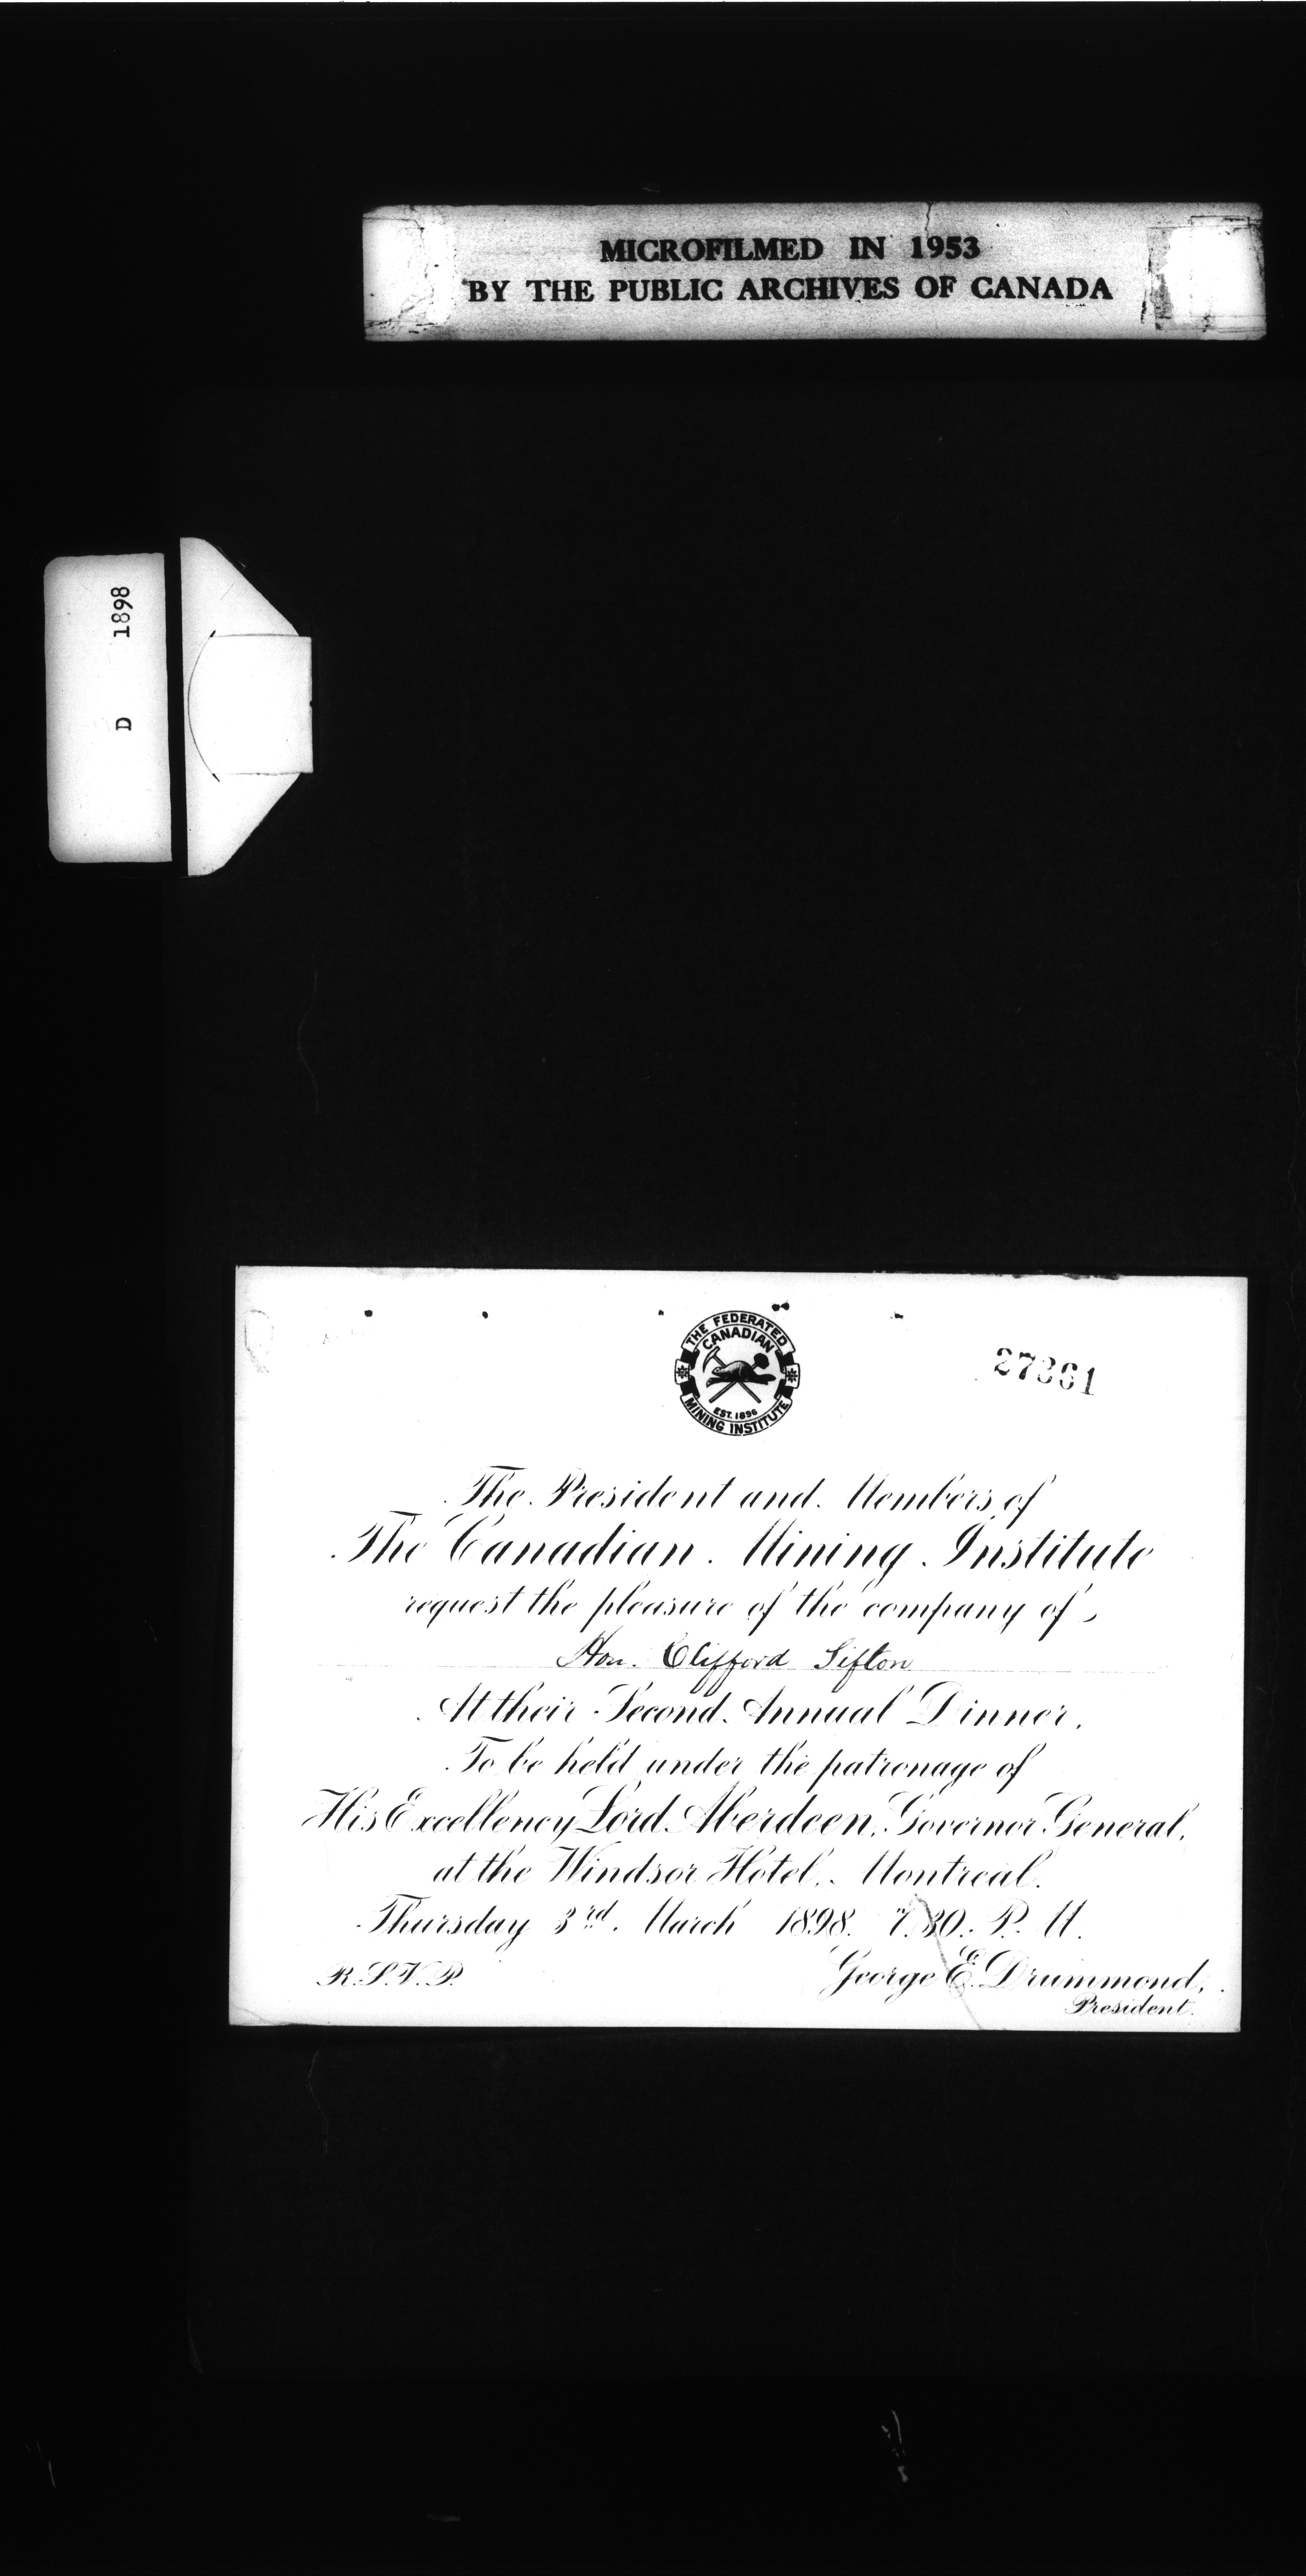 MICROFILMED IN 1953
BY THE PUBLIC ARCHIVES OF CANADA
D 1898
THE FEDERATED
CANADIAN
EST. 1896
MINING INSTITUTE
27361
The President and Members of
The Canadian Mining Institute
request the pleasure of the company of
Hon. Clifford Sifton
At their Second Annual Dinner,
To be held under the patronage of
His Excellency Lord Aberdeen, Governor General,
at the Windsor Hotel, Montreal.
Thursday 3rd. March 1898. 7.30. P. M.
R.S.V.P.
George E. Drummond,
President.